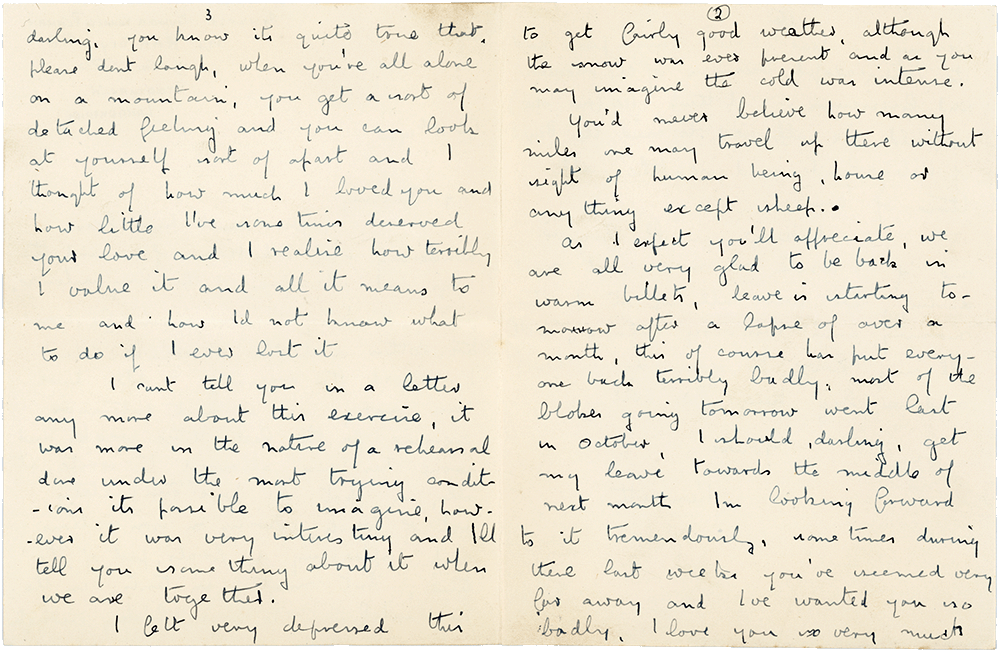 (2)
to get fairly good weather, although
the snow was ever present and as you
may imagine the cold was intense.
You'd never believe how many
miles one may travel up there without
sight of human being, house or
anything except sheep..
As I expect you'll appreciate, we
are all very glad to be back in
warm billets, leave is starting to-
morrow after a lapse of over a
month, this of course has put every-
one back terribly badly, most of the
blokes going tomorrow went last
in October, I should, darling, get
my leave towards the middle of
next month Im looking forward
to it tremendously, sometimes during
these last weeks you've seemed very
far away and I've wanted you so
badly. I love you so very much
3
darling, you know its quite true that,
please dont laugh, when you're all alone
on a mountain, you get a sort of
detached feeling and you can look
at yourself sort of apart and I
thought of how much I loved you and
how little I've sometimes deserved
your love and I realise how terribly
I value it and all it means to
me and how Id not know what
to do if I ever lost it
I cant tell you in a letter
any more about this exercise, it
was more in the nature of a rehearsal
done under the most trying condit-
-ions its possible to imagine, how-
-ever it was very interesting and Ill
tell you something about it when
we are together.
I felt very depressed this